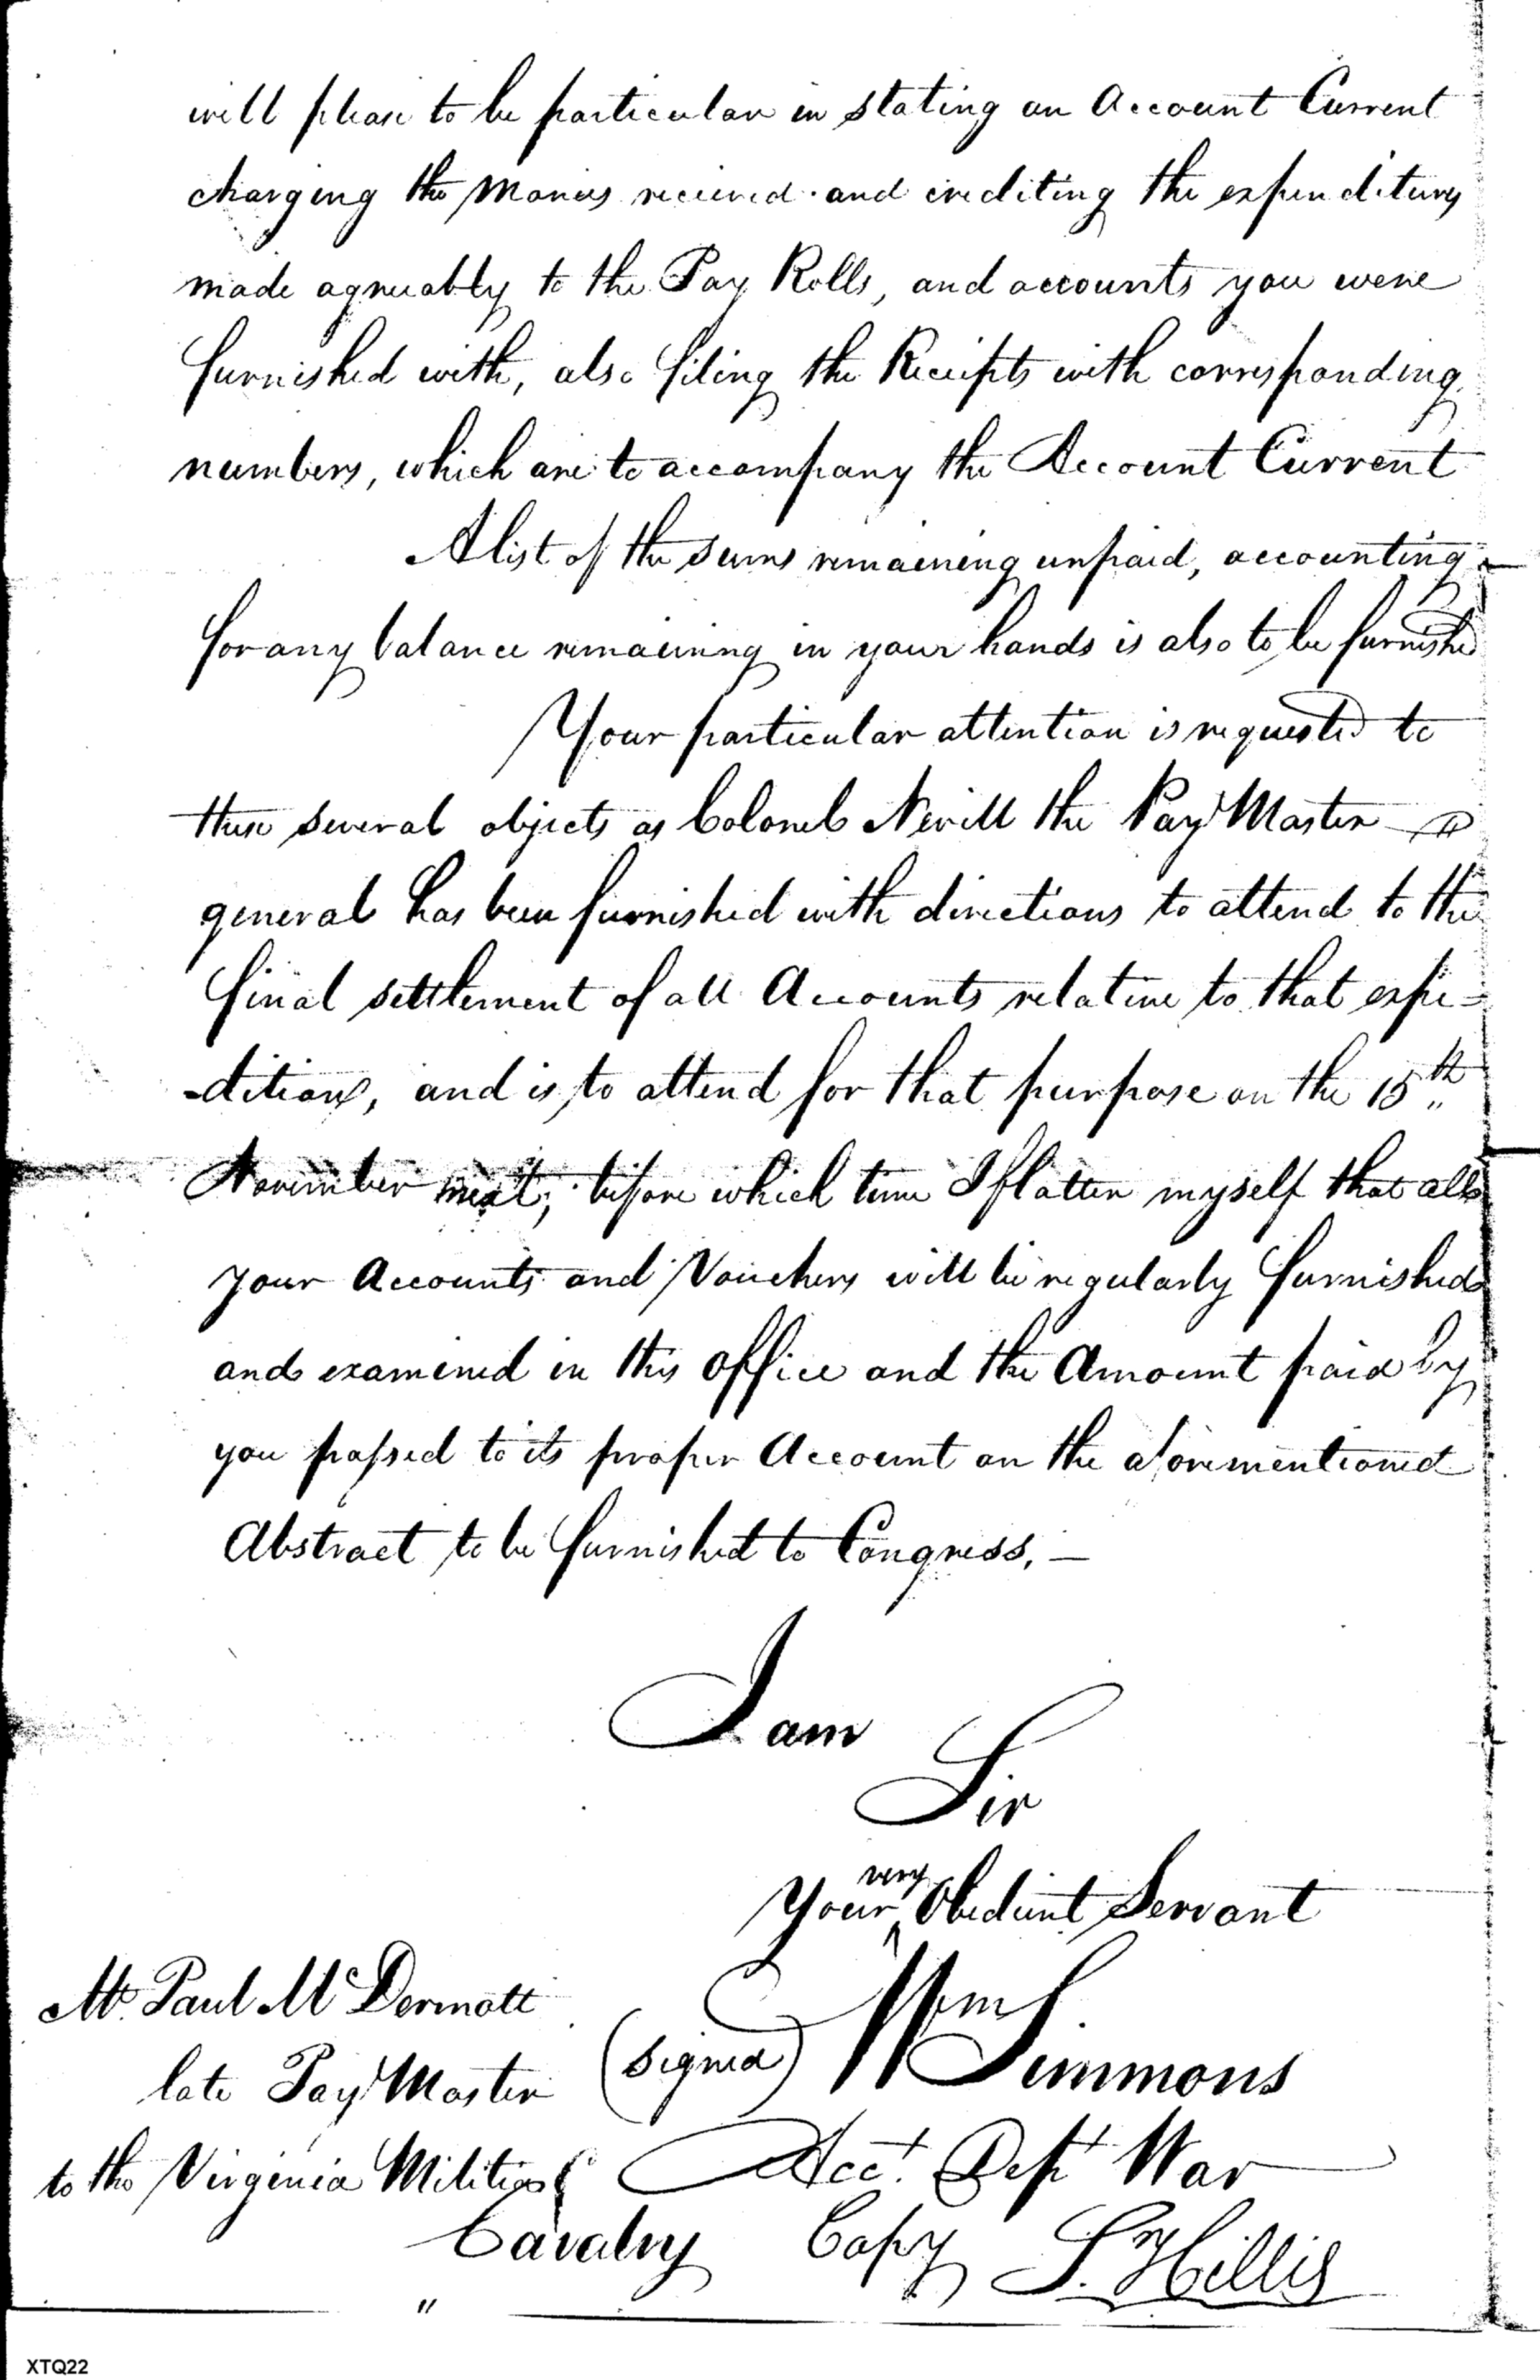 will please to be particular in stating an Account Current
charging the Monies recieved and crediting the expenditures
made agreeably to the Pay Rolls, and accounts you were
furnished with, also filing the Receipts with corresponding
numbers, which are to accompany the Account Current
A list of the sums remaining unpaid, accounting
for any balance remaining in your hands is also to be furnished
Your particular attention is requested to
these several objects as Colonel Nevill the Pay Master
general has been furnished with directions to attend to the
final settlement of all Accounts relative to that expe-
-ditions, and is to attend for that purpose on the 15th
November next, before which time I flatter myself that all
your Accounts and Vouchers will be regularly furnished
and examined in this office and the Amount paid by
you passed to its proper Account on the aforementioned
Abstract to be furnished to Congress. —
I am
Sir
Your very Obedient Servant
Mr. Paul McDermott
(signed) Wm Simmons
late Pay Master
to the Virginia Militia
Acct. Dept War
Cavalry
Copy S. Hillis
"
XTQ22